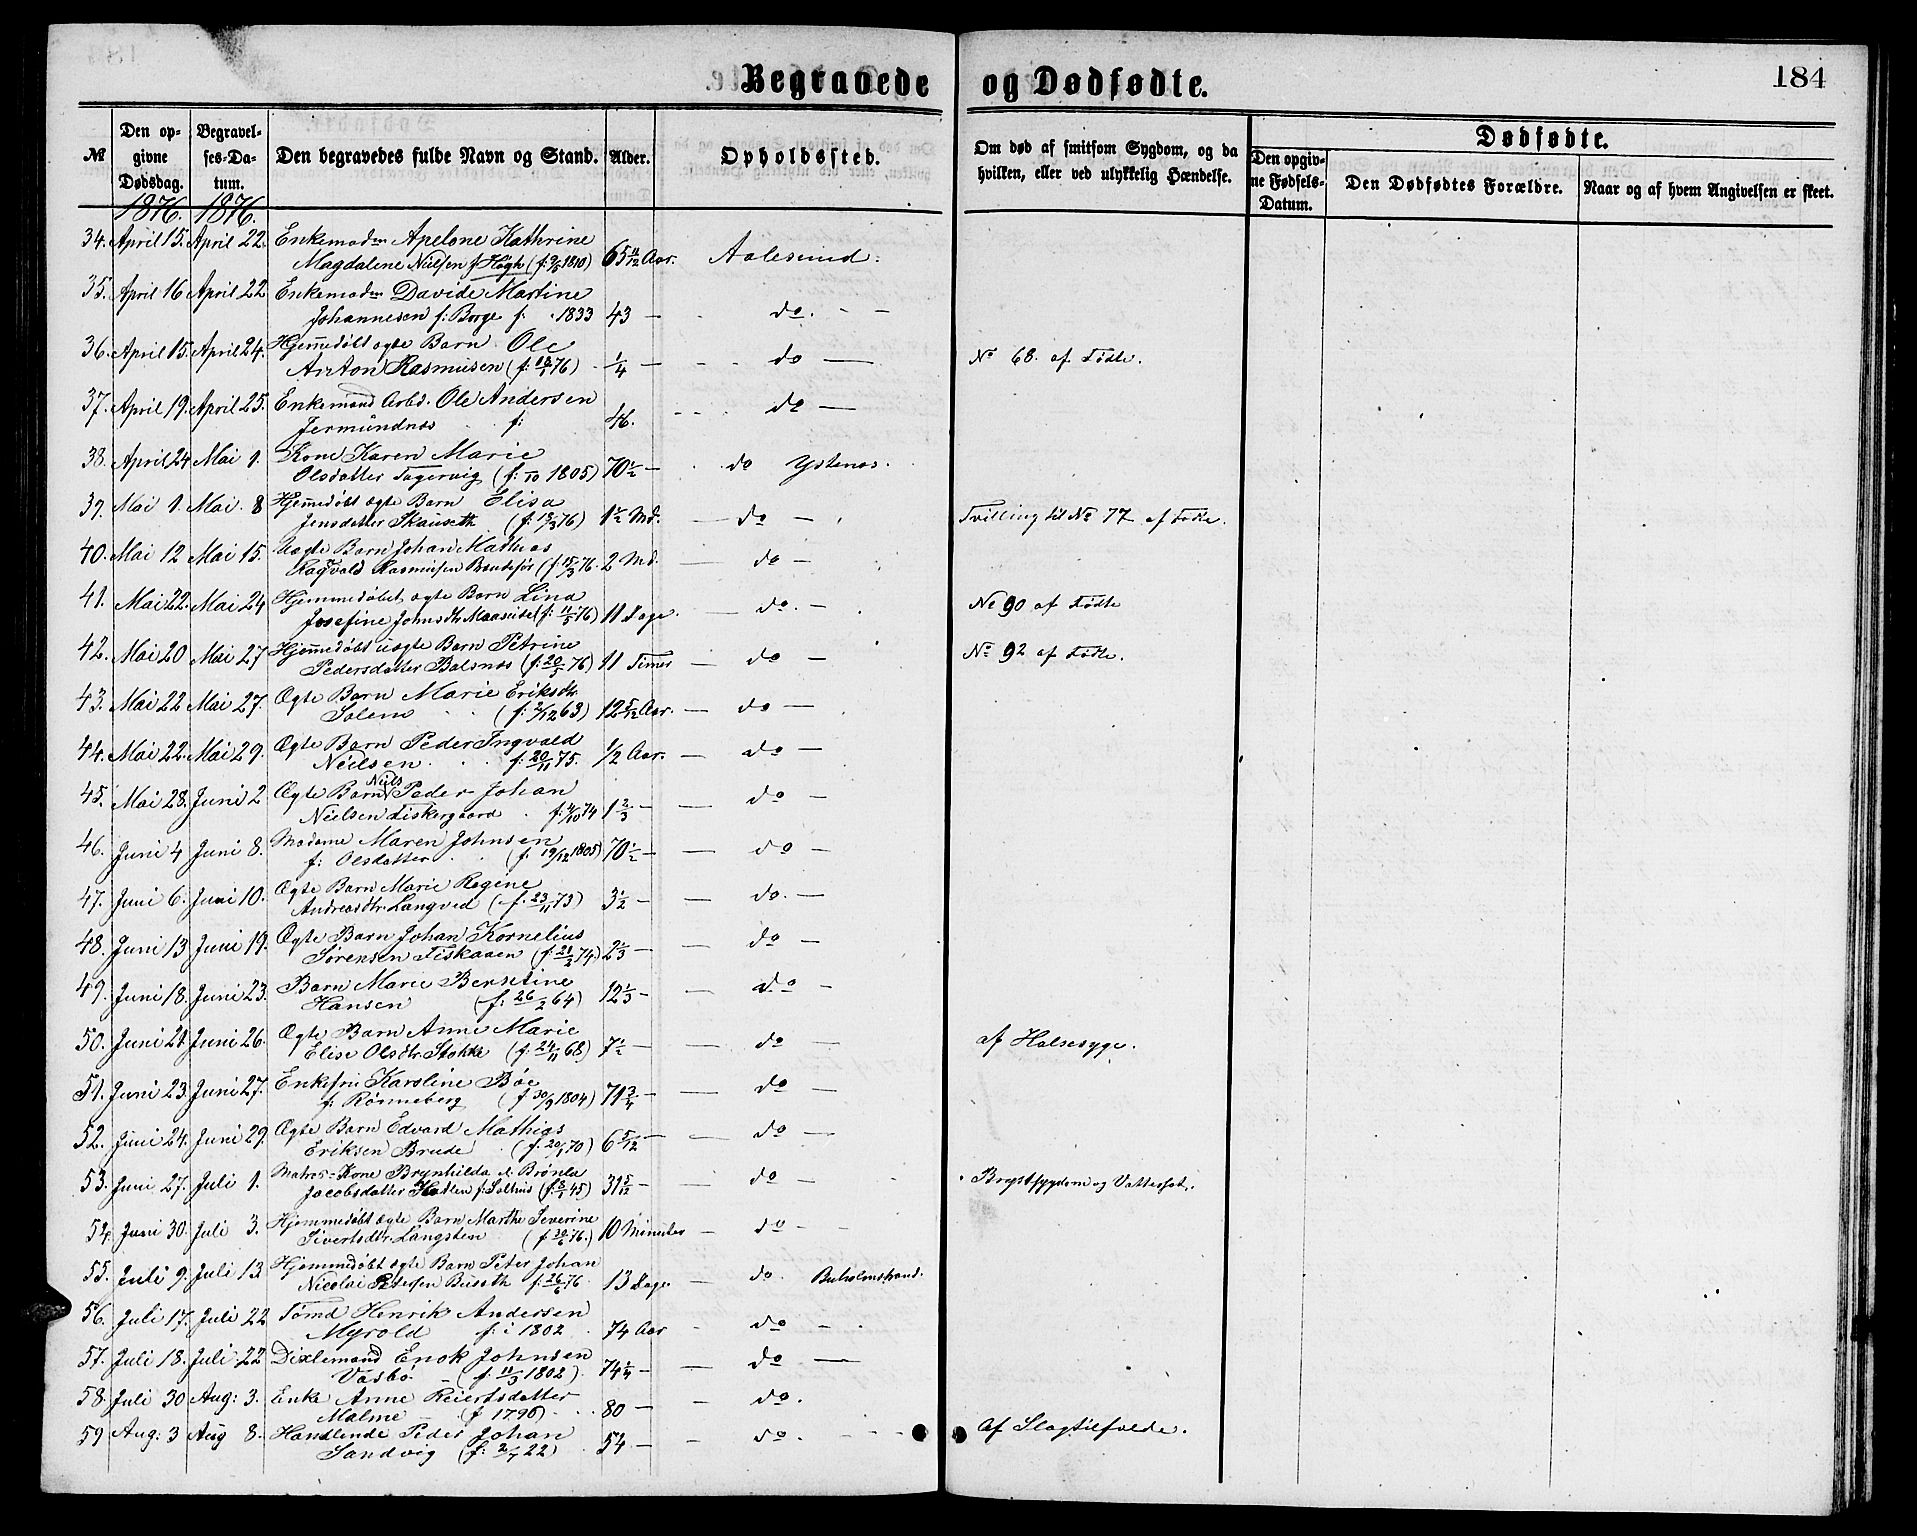 Begravede og Dødfødte. 184
№ Den opgivne Dødsdag. Begravelses-Datum. Den begravedes fulde Navn og Stand. Alder. Opholdssted. Om død af smitsom Sygdom, og da hvilken, eller ved ulykkelig Hændelse. Dødfødte.
Den opgivne Fødsels-Datum. Den Dødfødtes Forældre. Naar og af hvem Angivelsen er skeet.
1876. 1876.
34. April 15. April 22. Enkemadm Apelone Kathrine
Magdalene Nielsen f. Høgh (f. 9/5 1810) 65 11/12 Aar. Aalesund.
35. April 16 April 22 Enkemadm Davide Martine
Johannesen f: Borge f. 1833 43 — do. - -
36. April 15. April 24. Hjemmedøbt ægte Barn Ole
Anton Rasmusen (f: 18/1 76) 1/4 — do — No 68. af Fødte.
37. April 19. April 25. Enkemand Arbd. Ole Andersen
Jermundnæs f: 46. do —
38. April 24 Mai 1. Kone Karen Marie
Olsdatter Fagervig (f: /10 1805) 70 1/2 — do Ystenæs.
39. Mai 1. Mai 8 Hjemmedøbt ægte Barn Elisa
Jensdatter Skauseth (f: 18/3 76) 1 1/2 Md. — do — Tvilling til No 77 af Fødte.
40. Mai 12 Mai 15. Uægte Barn Johan Mathias
Ragvald Rasmusen (f: 15/3 76. 2 Md. — do —
41. Mai 22. Mai 24 Hjemmedøbet ægte Barn Lina
Josefine Johnsdtr (f: 11/5 76) 11 Dage. — do. — No 90 af Fødte
42. Mai 20 Mai 27 Hjemmedøbt uægte Barn Petrine
Pedersdatter Balsnæs (f: 20/5 76) 11 Timer — do — No 92 af Fødte.
43. Mai 22 Mai 27. Ægte Barn Marie Eriksdtr.
Solem (f: 2/12 63) 12 5/12 Aar. — do —
44. Mai 22. Mai 29. Ægte Barn Peder Ingvald
Nielsen f: 20/11 75. 1/2 Aar. — do —
45. Mai 28. Juni 2 Ægte Barn Niels Peder Johan
Nielsen Fiskergaard f: 4/10 74 1 2/3 — do —
46. Juni 4 Juni 8. Madame Maren Johnsen
f: Olsdatter (f. 19/12 1805) 70 1/2 — do —
47. Juni 6. Juni 10. Ægte Barn Marie Regene
Andreasdtr. Langved (f. 23/11 73) 3 1/2 — do. —
48. Juni 13 Juni 19. Ægte Barn Johan Kornelius
Sørensen Fiskaaen (f: 21/2 74.) 2 1/3 — do —
49. Juni 18. Juni 23. Barn Marie Bersetine
Hansen (f: 26/2 64) 12 1/3 — do —
50. Juni 21 Juni 26. Ægte Barn Anne Marie
Elise Olsdtr. Stokke (f: 24/11 68) 7 1/2 — do — af Halssyge.
51. Juni 23. Juni 27. Enkefru Karoline Bøe
f: Rønneberg (f 30/9 1804) 71 3/4 — do —
52. Juni 24. Juni 29. Ægte Barn Edvard Mathias
Eriksen Brude (f. 20/1 70) 6 5/12 — do —
53. Juni 27. Juli 1. Matros-Kone Brynhilda d. Brønla
Jacobsdatter Hatlen f: Solhus (f. 8/1 45) 31 5/12 — do — Brystsygdom og Vattersot.
54. Juni 30. Juli 3. Hjemmedøbt ægte Barn Marthe Severine
Sivertsdtr. Langsten (f 30/6 76.) 10 Minuter — do —
55. Juli 9. Juli 13 Hjemmedøbt ægte Barn Peter Johan
Nicolai Petersen Buseth f: 26/6 76 13 Dage — do. Buholmstrand.
56. Juli 17. Juli 22 Tømd Henrik Andersen
Myrold f: i 1802 74 Aar do —
57. Juli 18. Juli 22 Dixlemand Enok Johnsen
Vasbø (f: 11/3 1802) 74 1/4 — do —
58. Juli 30 Aug: 3. Enke Anne Reiertsdatter
Malme (f 1796) 80 — do.
59 Aug: 3 Aug 8. Handlende Peder Johan
Sandvig (f: 2/7 22) 54 — do. Af Slagtilfælde.